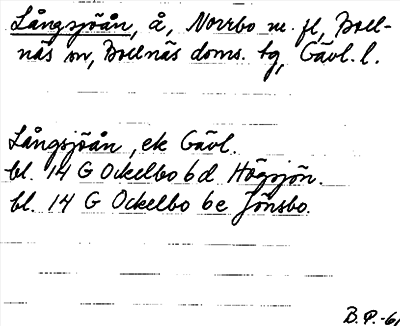 Långsjöån, å, Norrbo m. fl, Boll-
näs sn, Bollnäs doms. tg, Gävl. l.
Långsjöån, ek Gävl.
bl. 14 G Ockelbo 6 d Högsjön.
bl. 14 G Ockelbo 6 e Jönsbo.
B.P.-61